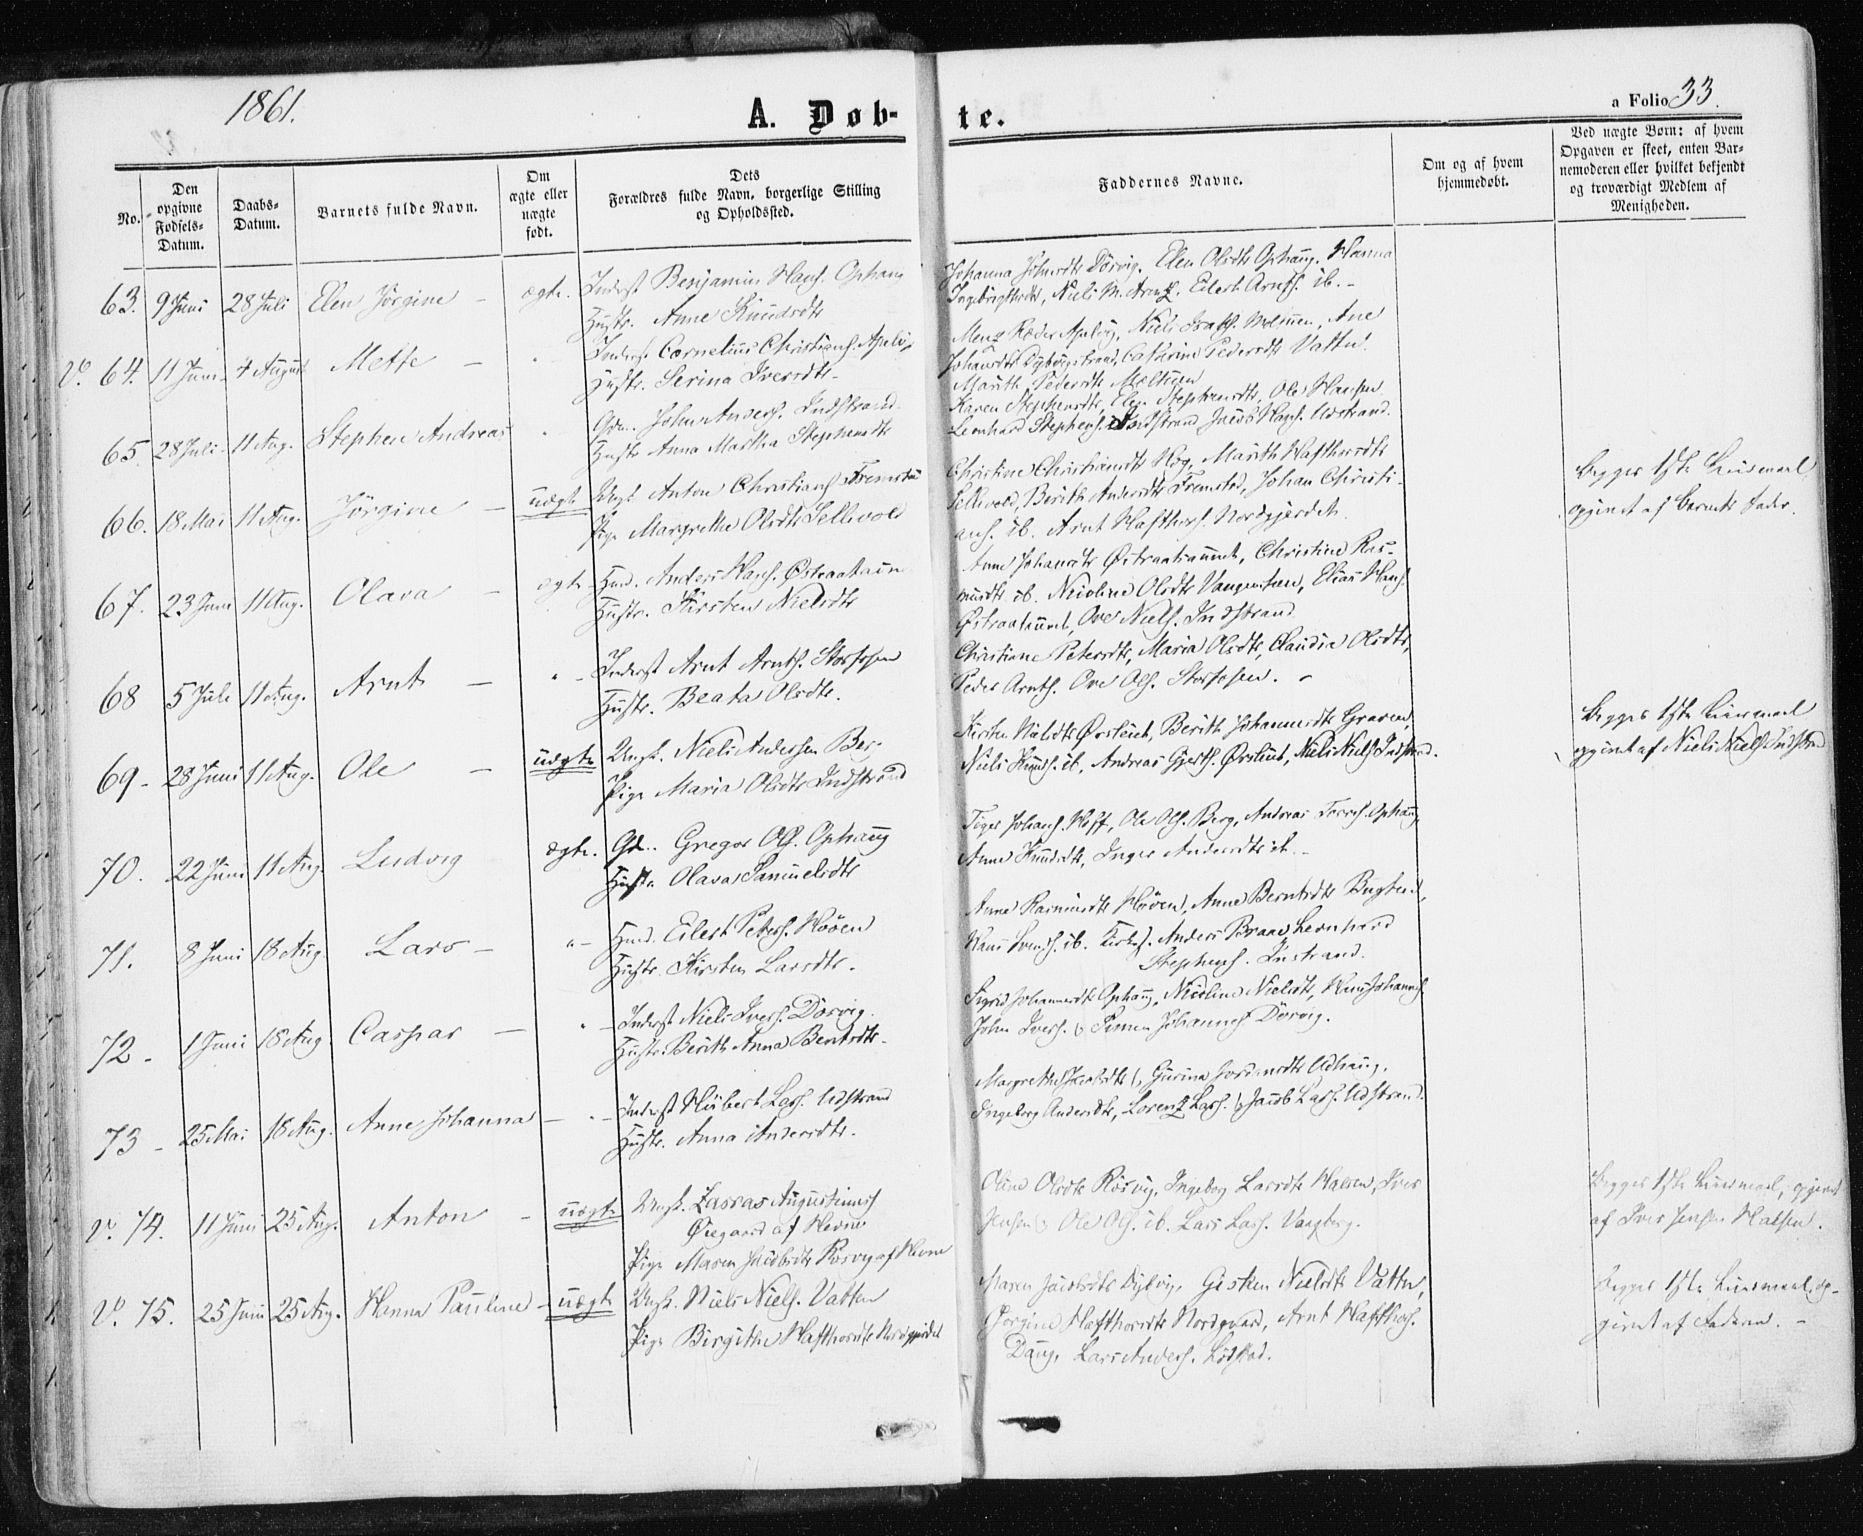 1861.
A. Døb-
te.
a Folio 33.
No.
Den opgivne Fødsels-Datum.
Daabs-Datum.
Barnets fulde Navn.
Om ægte eller uægte født.
Dets Forældres fulde Navn, borgerlige Stilling og Opholdssted.
Faddernes Navne.
Om og af hvem hjemmedøbt.
Ved uægte Børn: af hvem Opgaven er skeet, enten Barnemoderen eller hvilket bekjendt og troværdigt Medlem af Menigheden.
63. 9 Juni 28 Juli Elen Jörgine – ægte. Inderst Benjamin Hans. Ophaug
Hustr. Anne Knudsdtr
Johanna Johnsdtr Dörvig, Elen Olsdtr Ophaug, Hanna
Ingebrigtsdtr, Niels M. Arntz. Eilert Arnts. ib. –
V. 64. 11 Juni 4 August Mette – Inderst Cornelius Christians. Apelv
Hustr. Serina Iversdtr
Menz Ræder Apelvig, Niels Isaks. Mælmen, Ane
Johansdtr Dybvigstrand, Cathrine Pedersdtr Vatten
Marith Pedersdtr Mælmen
65. 28 Juli 11 Aug. Stephen Andreas Gdm. John Anders. Indstrand.
Hustr Anna Martha Stephensdtr
Karen Stephensdtr, Elen Stephensdtr, Ole Hansen
Leonhard Stephens. Indstrand Jacob Hans. Udstrand.
66. 18 Mai 11 Aug. Jörgine – uægte Ungk. Anton Christians Fremstad
Pige Margrethe Olsdtr Sellevold
Christine Christiansdtr Hög, Marith Hafthorsdtr
Sellevold, Berith Andersdtr Fremstad, Johan Christi-
ans. ib. Arnt Hafthors. Nordgjerdet.
Begges 1ste Leiermaal
opgivet af Barnets Fader.
67. 23 Juni 11 Aug. Olava – ægte Hmd. Anders Hans. Østraataun
Hustr. Kirsten Nielsdtr
Anne Johansdtr Østraataunet, Christine Ras-
musdtr ib. Nicoline Olsdtr Vangensten, Elias Hans.
Østraataunet, Ove Niels. Indstrand.
68 5 Juli 11 Aug. Arnt – " – Inderst Arnt Arnts. Storfosen
Hustr. Beata Olsdtr.
Christiane Petersdtr, Maria Olsdtr, Claudia Olsdtr,
Peder Arnts. Ove Ols. Storfosen. –
69 – 28 Juni 11 Aug. Ole – uægte Ungk. Niels Andersen Berg
Pige Maria Olsdtr Indstrand
Kirsten Nielsdtr Ørsleiet, Berith Johannesdtr Graven,
Niels Knuds. ib, Andreas Gjerts. Ørsleiet, Niels Niels Indstrand.
Begges 1ste Leiermaal
opgivet af Niels Niels. Indstrand
70. 22 Juni 11 Aug. Ludvig ægte. Gd. Gregor Ols. Ophaug
Hustr Olava Samuelsdtr
Johans. Hoff, Ole Ols. Berg, Andreas Ophaug
Anne Knudsdtr, Inger Andersdtr ib. –
71. 8 Juni 18 Aug. Lars – " – Hmd. Eilert Peters. Höven
Hustr. Kirsten Larsdtr.
Anne Rasmusdtr Höven, Anne Berntsdtr Bugten,
Hans Svends. ib. Anders Braae Leonhard
Stephens. Instrand.
72 – 1 Juni 18 Aug Caspar – " – Inderst Niels Ivers. Dörvig.
Hustr. Berith Anna Berntsdtr –
Sigrid Johannesdtr Ophaug, Nicoline Nielsdtr, Hans Johannes.
John Ivers. Simen Johannes Dörvig.
73 – 25 Mai 18 Aug. Anne Johanna – " – Inderst Hubert Lars. Udstrand
Hustr. Anna Andersdtr.
Margrethe Jacobsdtr Gurina Udhaug,
Ingeborg Andersdtr, Lorentz Lars. Jacob Lars. Udstrand.
V. 74. 11 Juni 25 Aug. Anton – uægte Ungk. Zarras Augustinus
Øiegaard af Hevne
Pige Maren Jacobsdtr Rösvig af Hevne
Oline Olsdtr Rösvig, Ingeborg Larsdtr Halsen, Iver
Jensen Ole Ols. ib. Lars Lars. Vaagberg.
Begges 1ste Leiermaal, opgivet
af Iver Jensen Halsen.
V. 75. 25 Juni 25 Aug. Hanna Pauline – uægte Ungk. Niels Niels. Vatten
Pige Birgithe Hafthorsdtr Nordgjerdet
Maren Jacobsdtr Dybvig, Gisken Nielsdtr Vatten,
Jörgine Hafthorsdtr Nordgjerd, Arnt Hafthors.
Daug, Lars Anders.
Begges 1ste Leiermaal op-
givet af Faderen. –